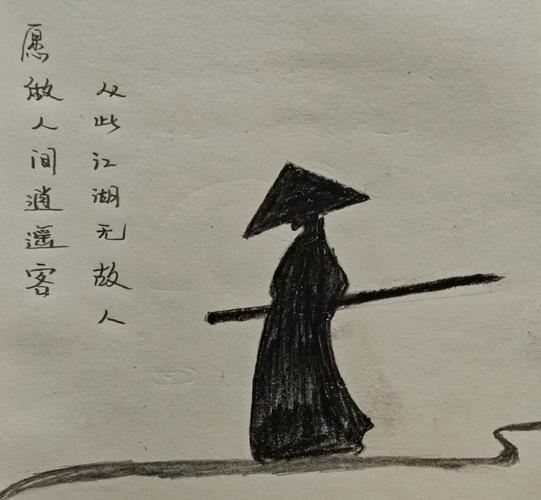 愿做人间逍遥客
从此江湖无故人